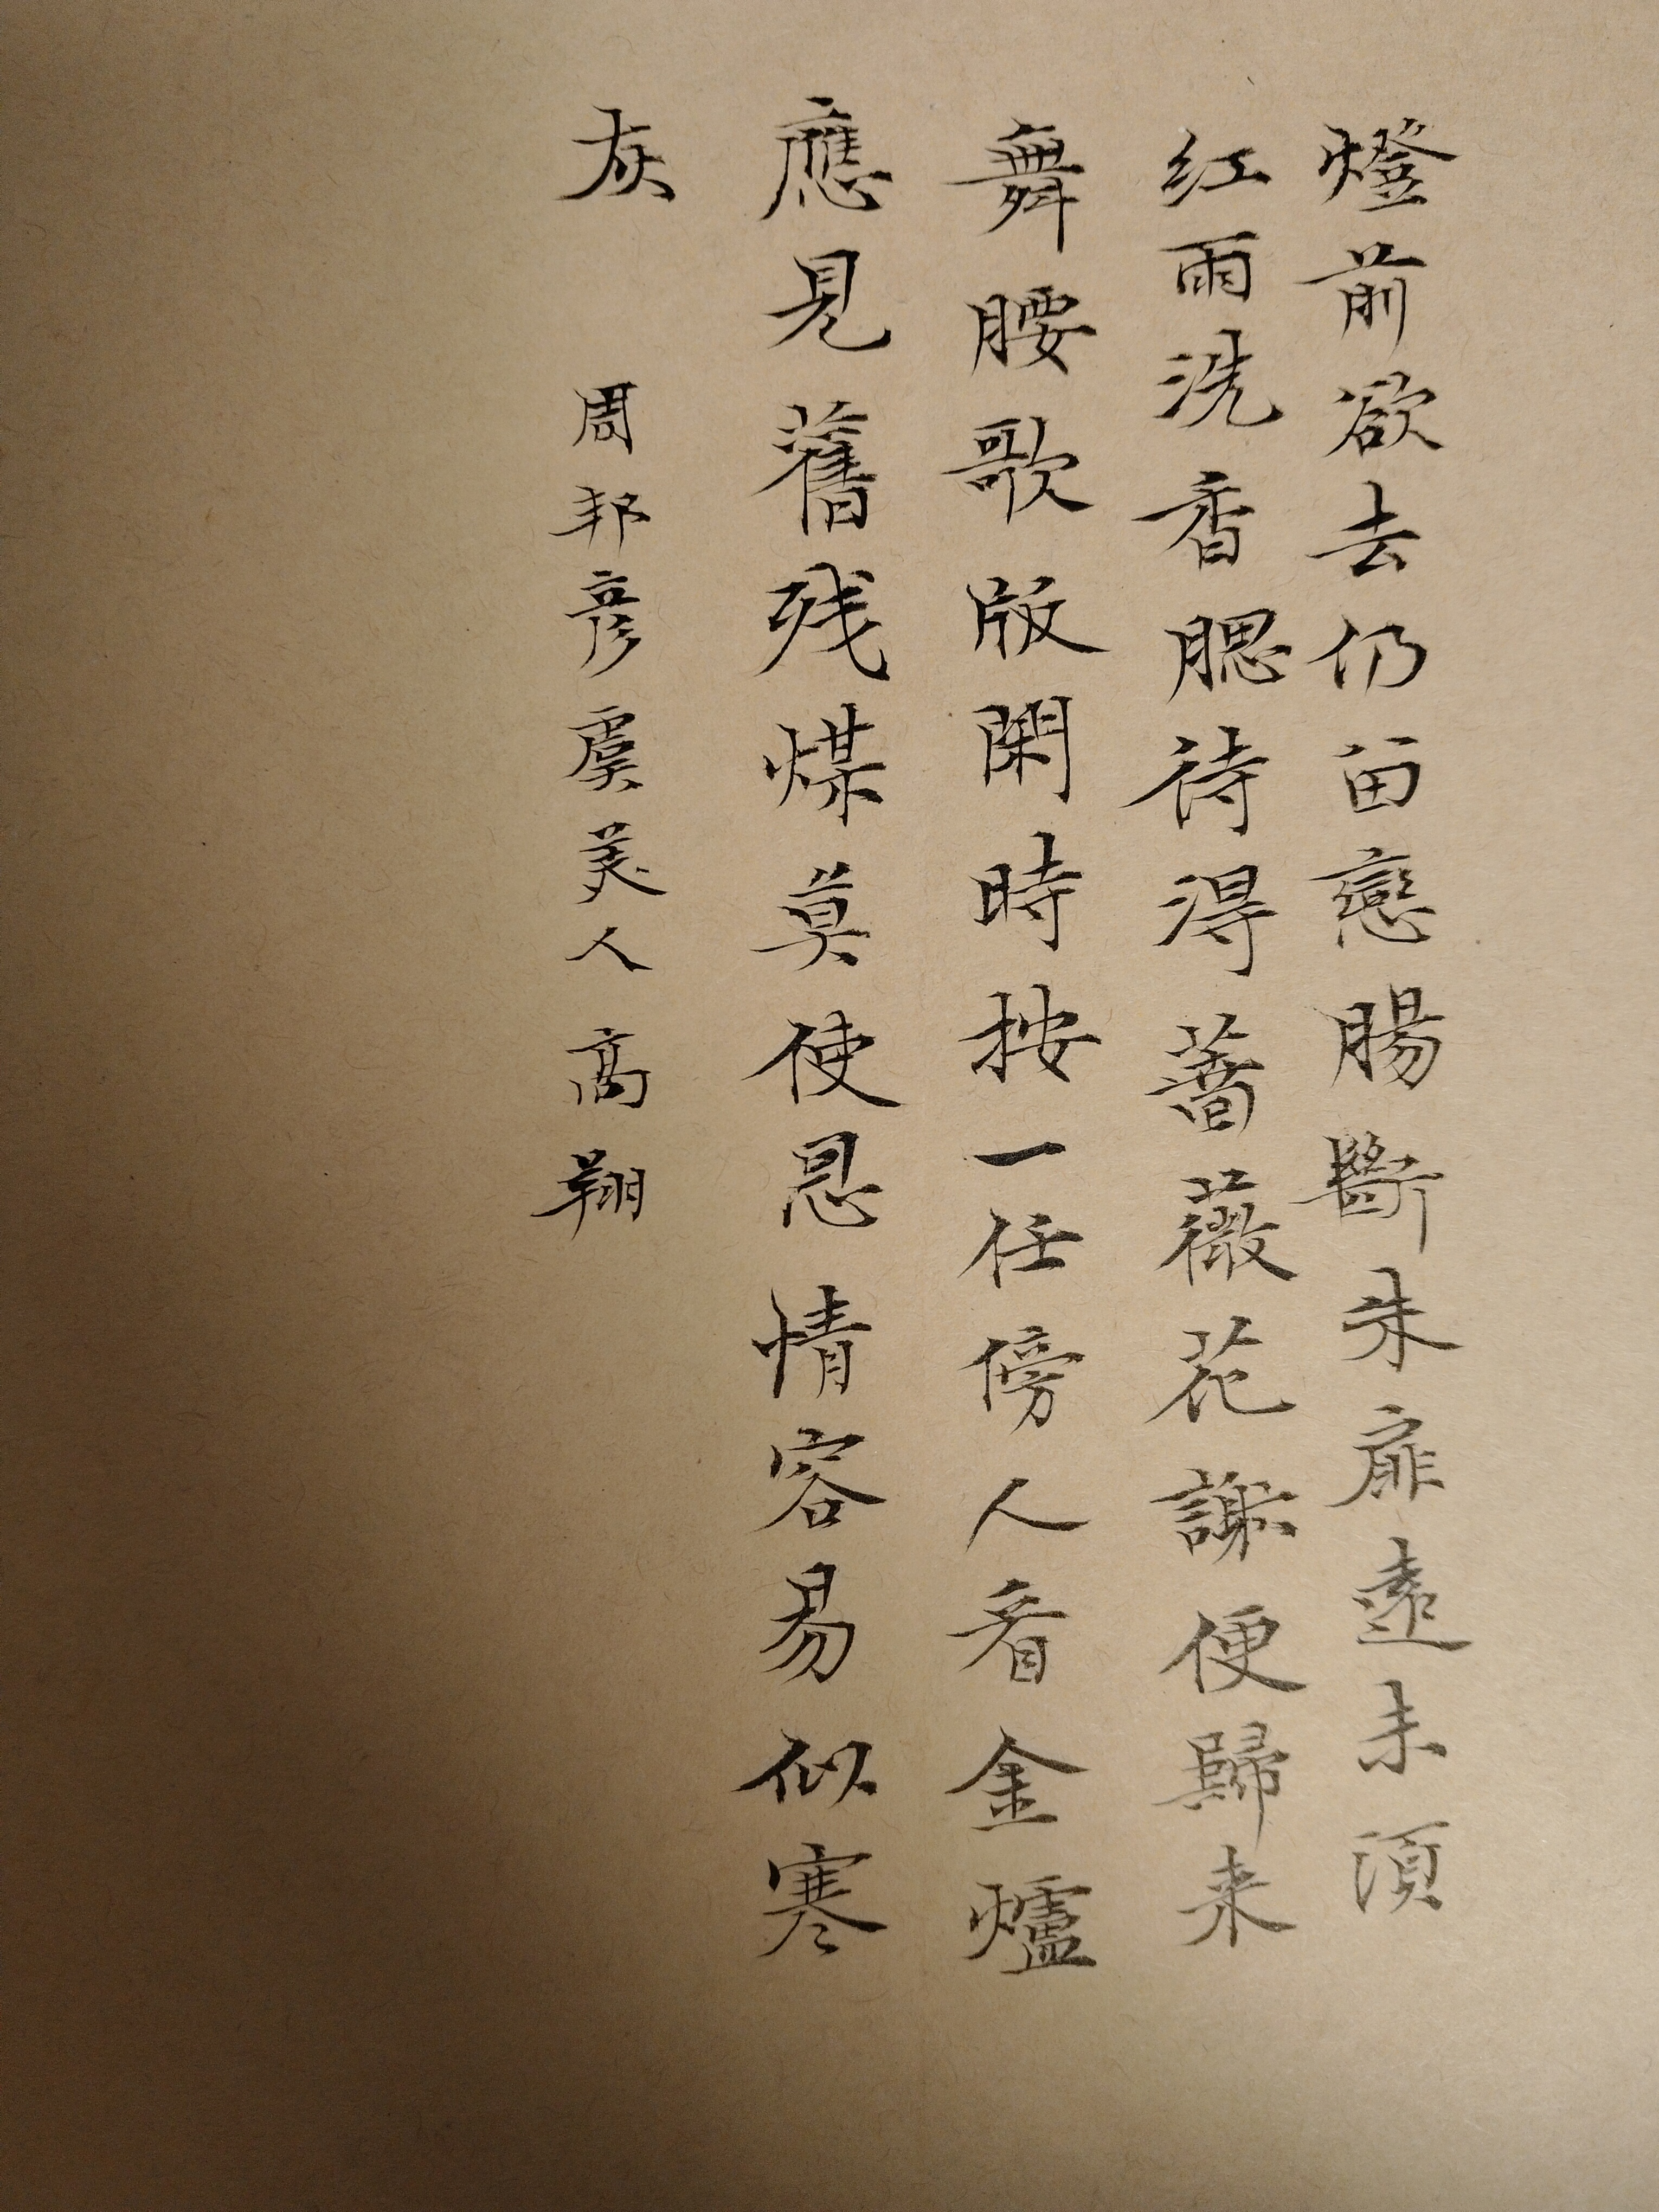 燈前欲去仍留戀腸斷朱扉遠未須
红雨洗香腮待得薔薇花謝便歸来
舞腰歌版閑時按一任傍人看金爐
應見舊残煤莫使恩情容易似寒
灰 周邦彦虞美人 高翔